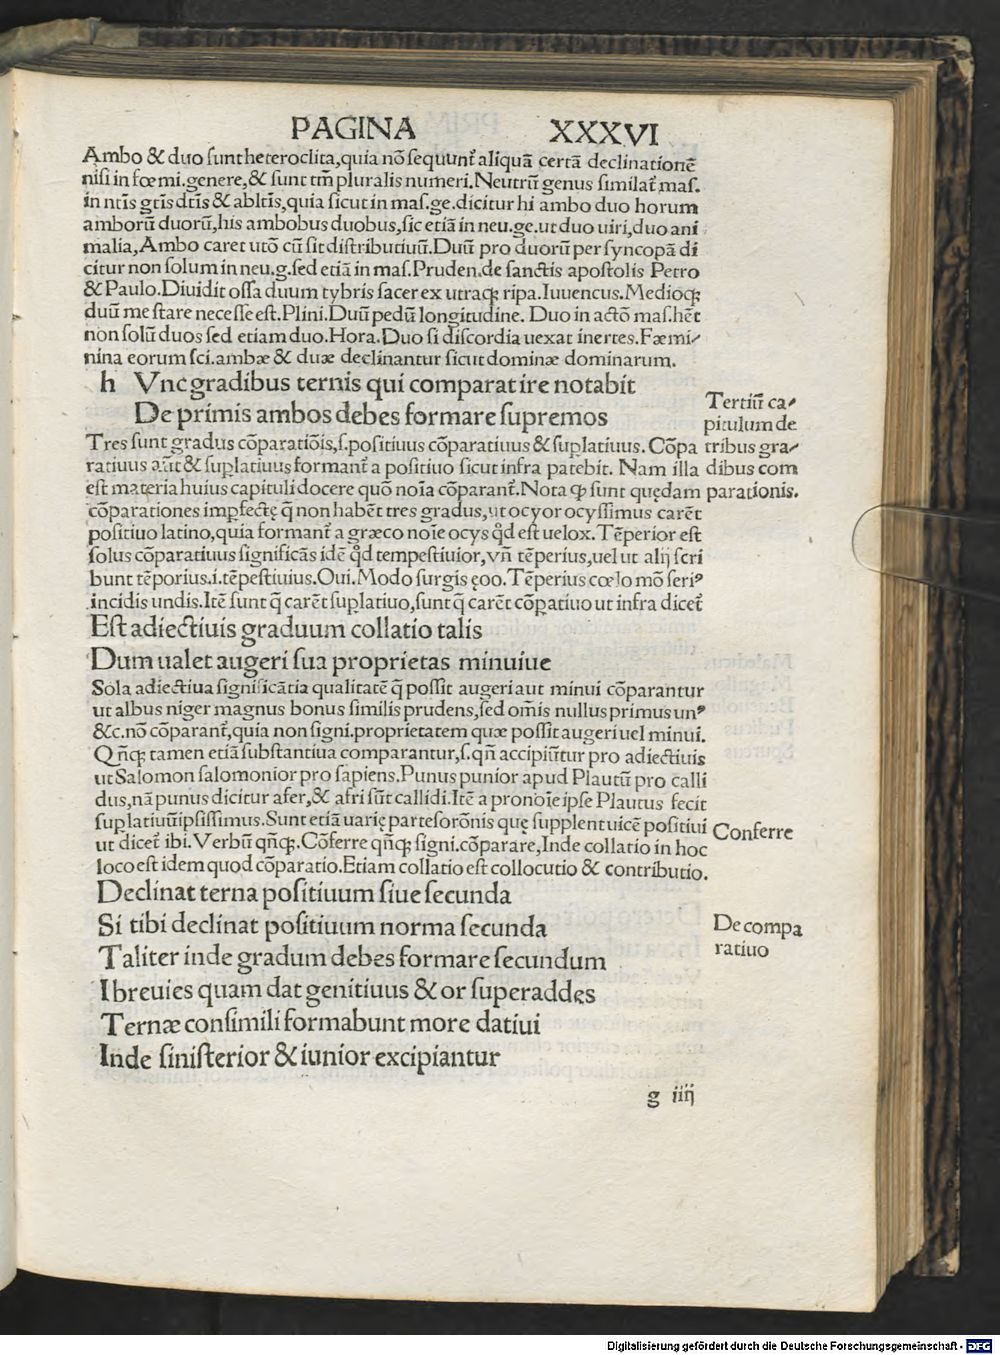 PAGINA XXXVI
Ambo & duo sunt heteroclita,quia nō sequunt᷑ aliquā certā declinationē
nisi in fœmi.genere,& sunt tm̄ pluralis numeri.Neutrū genus similat᷑ mas.
in ntīs gtīs dtīs & abltīs,quia sicut in mas.ge.dicitur hi ambo duo horum
amborū duorū,his ambobus duobus,sic etiā in neu.ge.ut duo uiri,duo ani
malia,Ambo caret utō cū sit distributiuū.Duū pro duorū per syncopā di
citur non solum in neu.g.sed etiā in mas.Pruden.de sanctis apostolis Petro
& Paulo.Diuidit ossa duum tybris sacer ex utraqꝫ ripa.Iuuencus.Medioqꝫ
duū me stare necesse est.Plini.Duū pedū longitudine. Duo in actō mas.hēt
non solū duos sed etiam duo.Hora.Duo si discordia uexat inertes.Fæmi⸗
nina eorum sci.ambæ & duæ declinantur sicut dominæ dominarum.
h Vnc gradibus ternis qui comparat ire notabit
De primis ambos debes formare supremos
Tertiū ca⸗
pitulum de
tribus gra⸗
dibus com
parationis.
Tres sunt gradus cōparatiōis,s.positiuus cōparatiuus & suplatiuus. Cōpa
ratiuus aūt & suplatiuus formant᷑ a positiuo sicut infra patebit. Nam illa
est materia huius capituli docere quō noīa cōparant᷑.Nota ꝙ sunt quędam
cōparationes imꝑfectę q̄ non habēt tres gradus,ut ocyor ocyssimus carēt
positiuo latino,quia formant᷑ a græco noīe ocys qd̓ est uelox. Tēperior est
solus cōparatiuus significās idē qd̓ tempestiuior,vn̄ tēperius,uel ut alij scri
bunt tēporius.i.tēpestiuius.Oui.Modo surgis ęoo.Tēperius cœlo mō seriꝰ
incidis undis.Itē sunt q̄ carēt suꝑlatiuo,sunt q̄ carēt cōꝑatiuo ut infra dicet᷑
Est adiectiuis graduum collatio talis
Dum ualet augeri sua proprietas minuiue
Sola adiectiua significātia qualitatē q̄ possit augeri aut minui cōparantur
ut albus niger magnus bonus similis prudens,sed om̄is nullus primus unꝰ
&c.nō cōparant᷑,quia non signi.proprietatem quæ possit augeri uel minui.
Qn̄qꝫ tamen etiā substantiua comparantur,s.qn̄ accipiūtur pro adiectiuis
ut Salomon salomonior pro sapiens.Punus punior apud Plautū pro calli
dus,nā punus dicitur afer,& afri sūt callidi.Itē a pronoīe ipse Plautus fecit
suplatiuū ipsissimus.Sunt etiā uarię partes orōnis quę supplent uicē positiui
ut dicet᷑ ibi. Verbū qn̄qꝫ.Cōferre qn̄qꝫ signi.cōparare,Inde collatio in hoc
loco est idem quod cōparatio.Etiam collatio est collocutio & contributio.
Conferre
Declinat terna positiuum siue secunda
Si tibi declinat positiuum norma secunda
Taliter inde gradum debes formare secundum
I breuies quam dat genitiuus & or superaddes
Ternæ consimili formabunt more datiui
Inde sinisterior & iunior excipiantur
De compa
ratiuo
g iiij
Digitalisierung gefördert durch die Deutsche Forschungsgemeinschaft - DFG